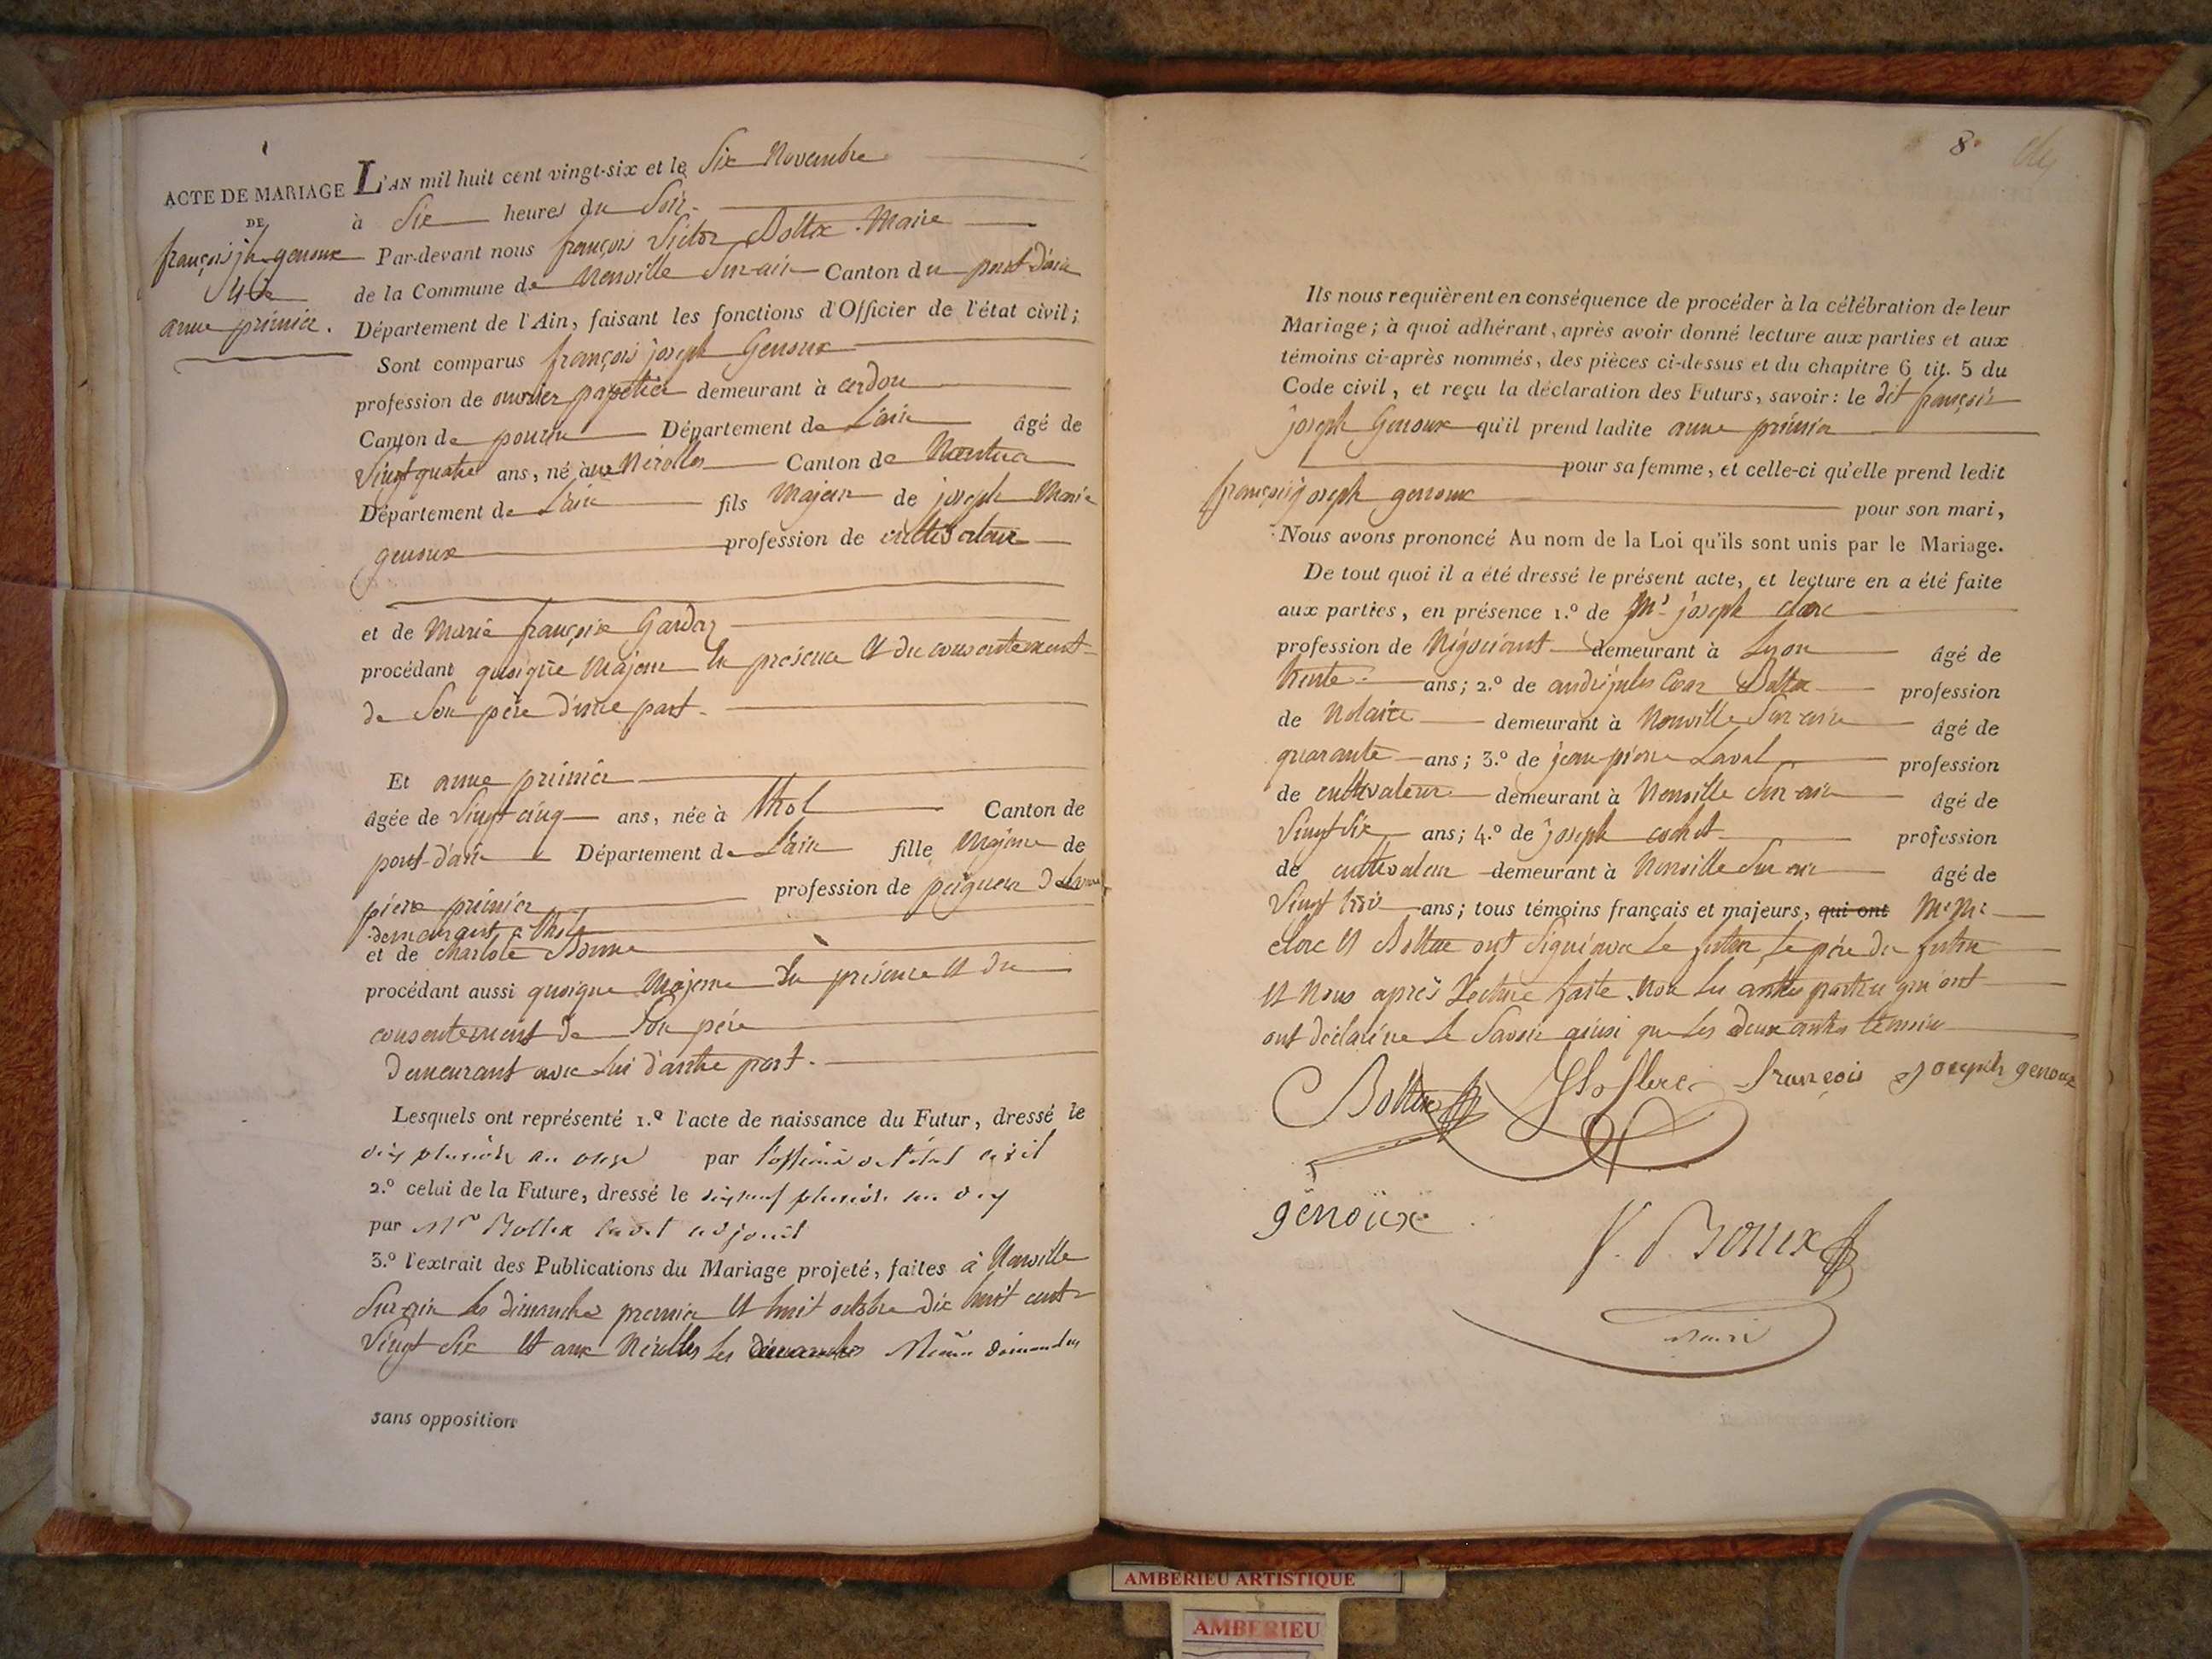 ACTE DE MARIAGE
DE
françois jh genoux
& de
anne prémier.
L'AN mil huit cent vingt-six et le Six Novembre
à Six heures du Soir
Par-devant nous françois Victor Bottex Maire
de la Commune de Neuville Sur ain Canton du pont d'ain
Département de l'Ain, faisant les fonctions d'Officier de l'état civil;
Sont comparus françois joseph Genoux
profession de ouvrier papetier demeurant à cerdon
Canton de poncin Département de L'ain âgé de
Vingt quatre ans, né aux Nérolles Canton de Nantua
Département de L'ain fils Majeur de joseph Marie
genoux profession de cultivateur
et de Marie françoise Gardaz
procédant quoique Majeur En présence Et du consentement
de Son père d'une part.
Et anne prémier
âgée de Vingt cinq ans, née à thol Canton de
pont-d'ain Département de L'ain fille Majeure de
pierre prémier profession de peigneur
demeurant à thol
et de charlote
procédant aussi quoique Majeure En présence Et du
consentement de Son père
Demeurant avec Lui d'autre part.
Lesquels ont représenté 1.º l'acte de naissance du Futur, dressé le
dix pluviose an onze par l'officier de l'état civil
2.º celui de la Future, dressé le dix neuf pluviose an dix
par Mr Bottex adjoint
3.º l'extrait des Publications du Mariage projeté, faites à Neuville
Sur ain les dimanches premier Et huit octobre dix huit cent
Vingt Six Et aux Nérolles les Mêmes dimanches
sans opposition
8
Ils nous requièrent en conséquence de procéder à la célébration de leur
Mariage; à quoi adhérant, après avoir donné lecture aux parties et aux
témoins ci-après nommés, des pièces ci-dessus et du chapitre 6 tit. 5 du
Code civil, et reçu la déclaration des Futurs, savoir: le dit françois
joseph Genoux qu'il prend ladite anne prémier
pour sa femme, et celle-ci qu'elle prend ledit
françois joseph genoux pour son mari,
Nous avons prononcé Au nom de la Loi qu'ils sont unis par le Mariage.
De tout quoi il a été dressé le présent acte, et lecture en a été faite
aux parties, en présence 1.º de Mr joseph clerc
profession de Négociant demeurant à Lyon âgé de
trente ans; 2.º de andré jules César Bottex profession
de Notaire demeurant à Neuville Sur ain âgé de
quarante ans; 3.º de jean pierre Laval profession
de cultivateur demeurant à Neuville Sur ain âgé de
Vingt Six ans; 4.º de joseph cochet profession
de cultivateur demeurant à Neuville Sur ain âgé de
Vingt trois ans; tous témoins français et majeurs, qui ont Mr Mr
clerc Et Bottex ont Signé avec Le futur, Le père du futur
Et Nous après Lecture faite. Non les autres parties qui ont
ont déclaré ne Le Savoir ainsi que les deux autres témoins
Bottex Clerc françois Joseph genoux
genoux V. Bottex
maire
AMBERIEU ARTISTIQUE
AMBERIEU